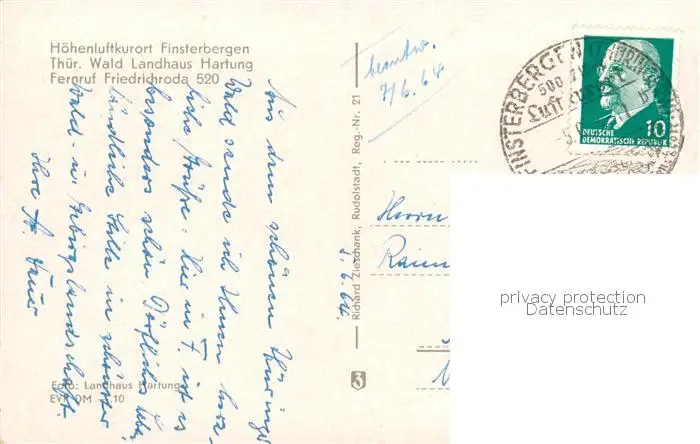 Höhenluftkurort Finsterbergen
Thür. Wald Landhaus Hartung
Fernruf Friedrichroda 520
Aus dem schönen Thüringer
Wald sende ich Ihnen herz-
liche Grüße. Hier in F. ist es
besonders schön. Dörfliches Leben
ländliche Stille in schönster
Wald- u. Gebirgslandschaft.
Ihre
Foto: Landhaus Hartung
EVP DM -.10
Richard Zieschank, Rudolstadt, Reg.-Nr. 21
beantw.
7/6.64
5.6.64.
Herrn
FINSTERBERGEN
500
Luftkurort
DEUTSCHE
DEMOKRATISCHE REPUBLIK
10
privacy protection
Datenschutz